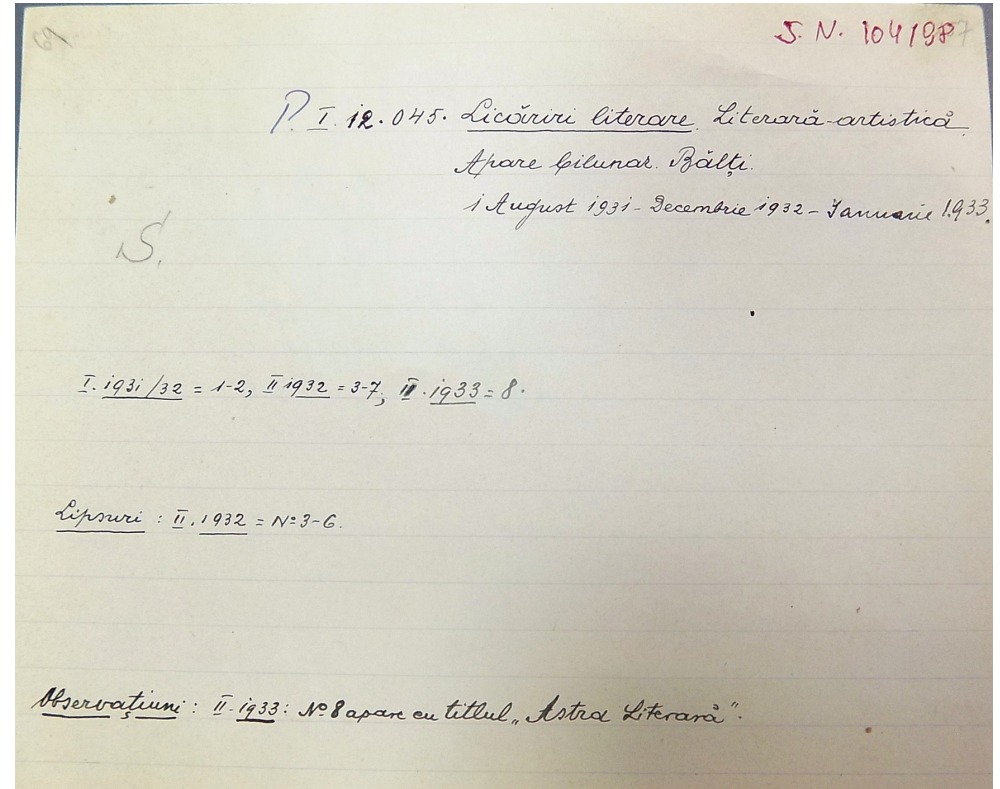 69
S. N. 104/98
P. I. 12.045. Licăriri literare. Literară-artistică.
Apare bilunar. Bălți.
1 August 1931 - Decembrie 1932 - Ianuarie 1933.
S.
I. 1931/32 = 1-2, II 1932 = 3-7, II. 1933 = 8.
Lipsuri : II. 1932 = № 3-6.
Observațiuni : II. 1933 : № 8 apare cu titlul „Astra Literară".